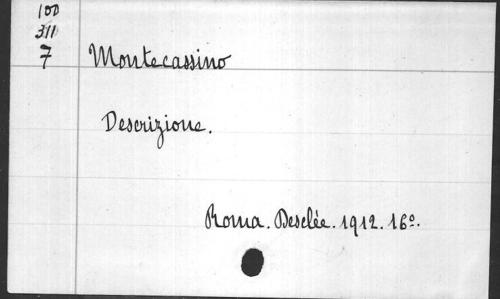 100
311
7 Montecassino
Descrizione.
Roma. Desclée. 1912. 16º.